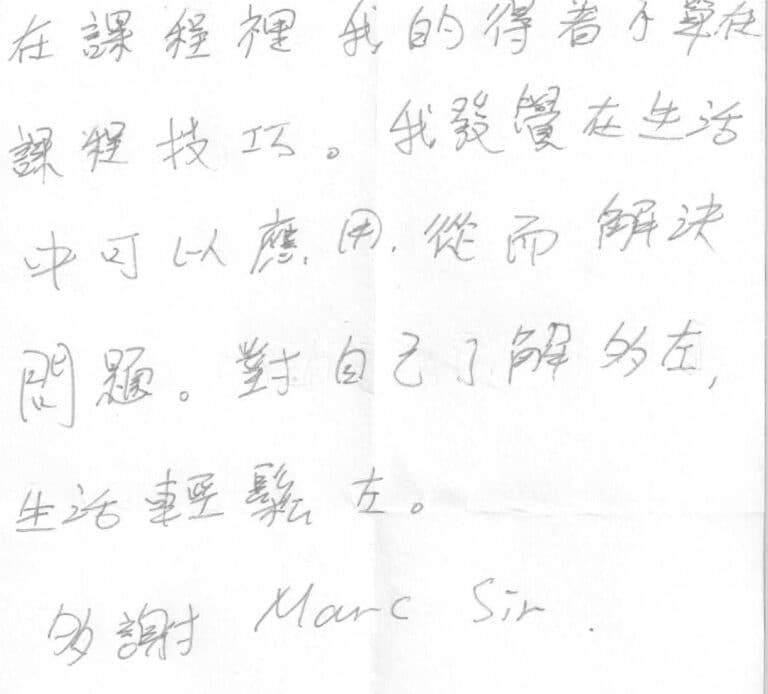 在課程裡 我的得着不單在
課程技巧。我發覺在生活
中可以應用.從而解決
問題。對自己了解多左,
生活輕鬆左。
多謝 Marc Sir.